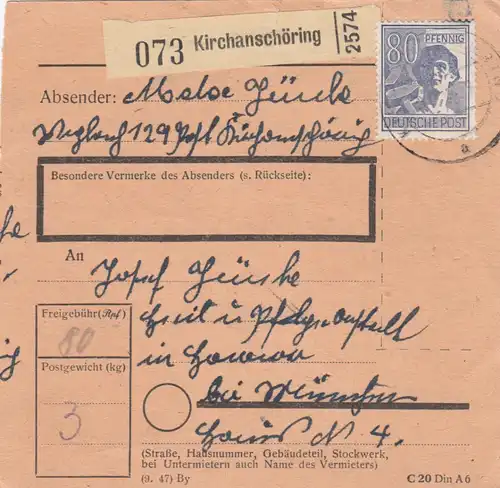 073 Kirchanschöring 2574
80 PFENNIG
DEUTSCHE POST
a
Absender:
129 Post Kirchanschöring
Besondere Vermerke des Absenders (s. Rückseite):
An Josef
Freigebühr (Rpf)
80
Heil u Pflegeanstalt
in
Postgewicht (kg)
3
bei München
Haus N 4.
(Straße, Hausnummer, Gebäudeteil, Stockwerk,
bei Untermietern auch Name des Vermieters)
(9. 47) By
C 20 Din A 6